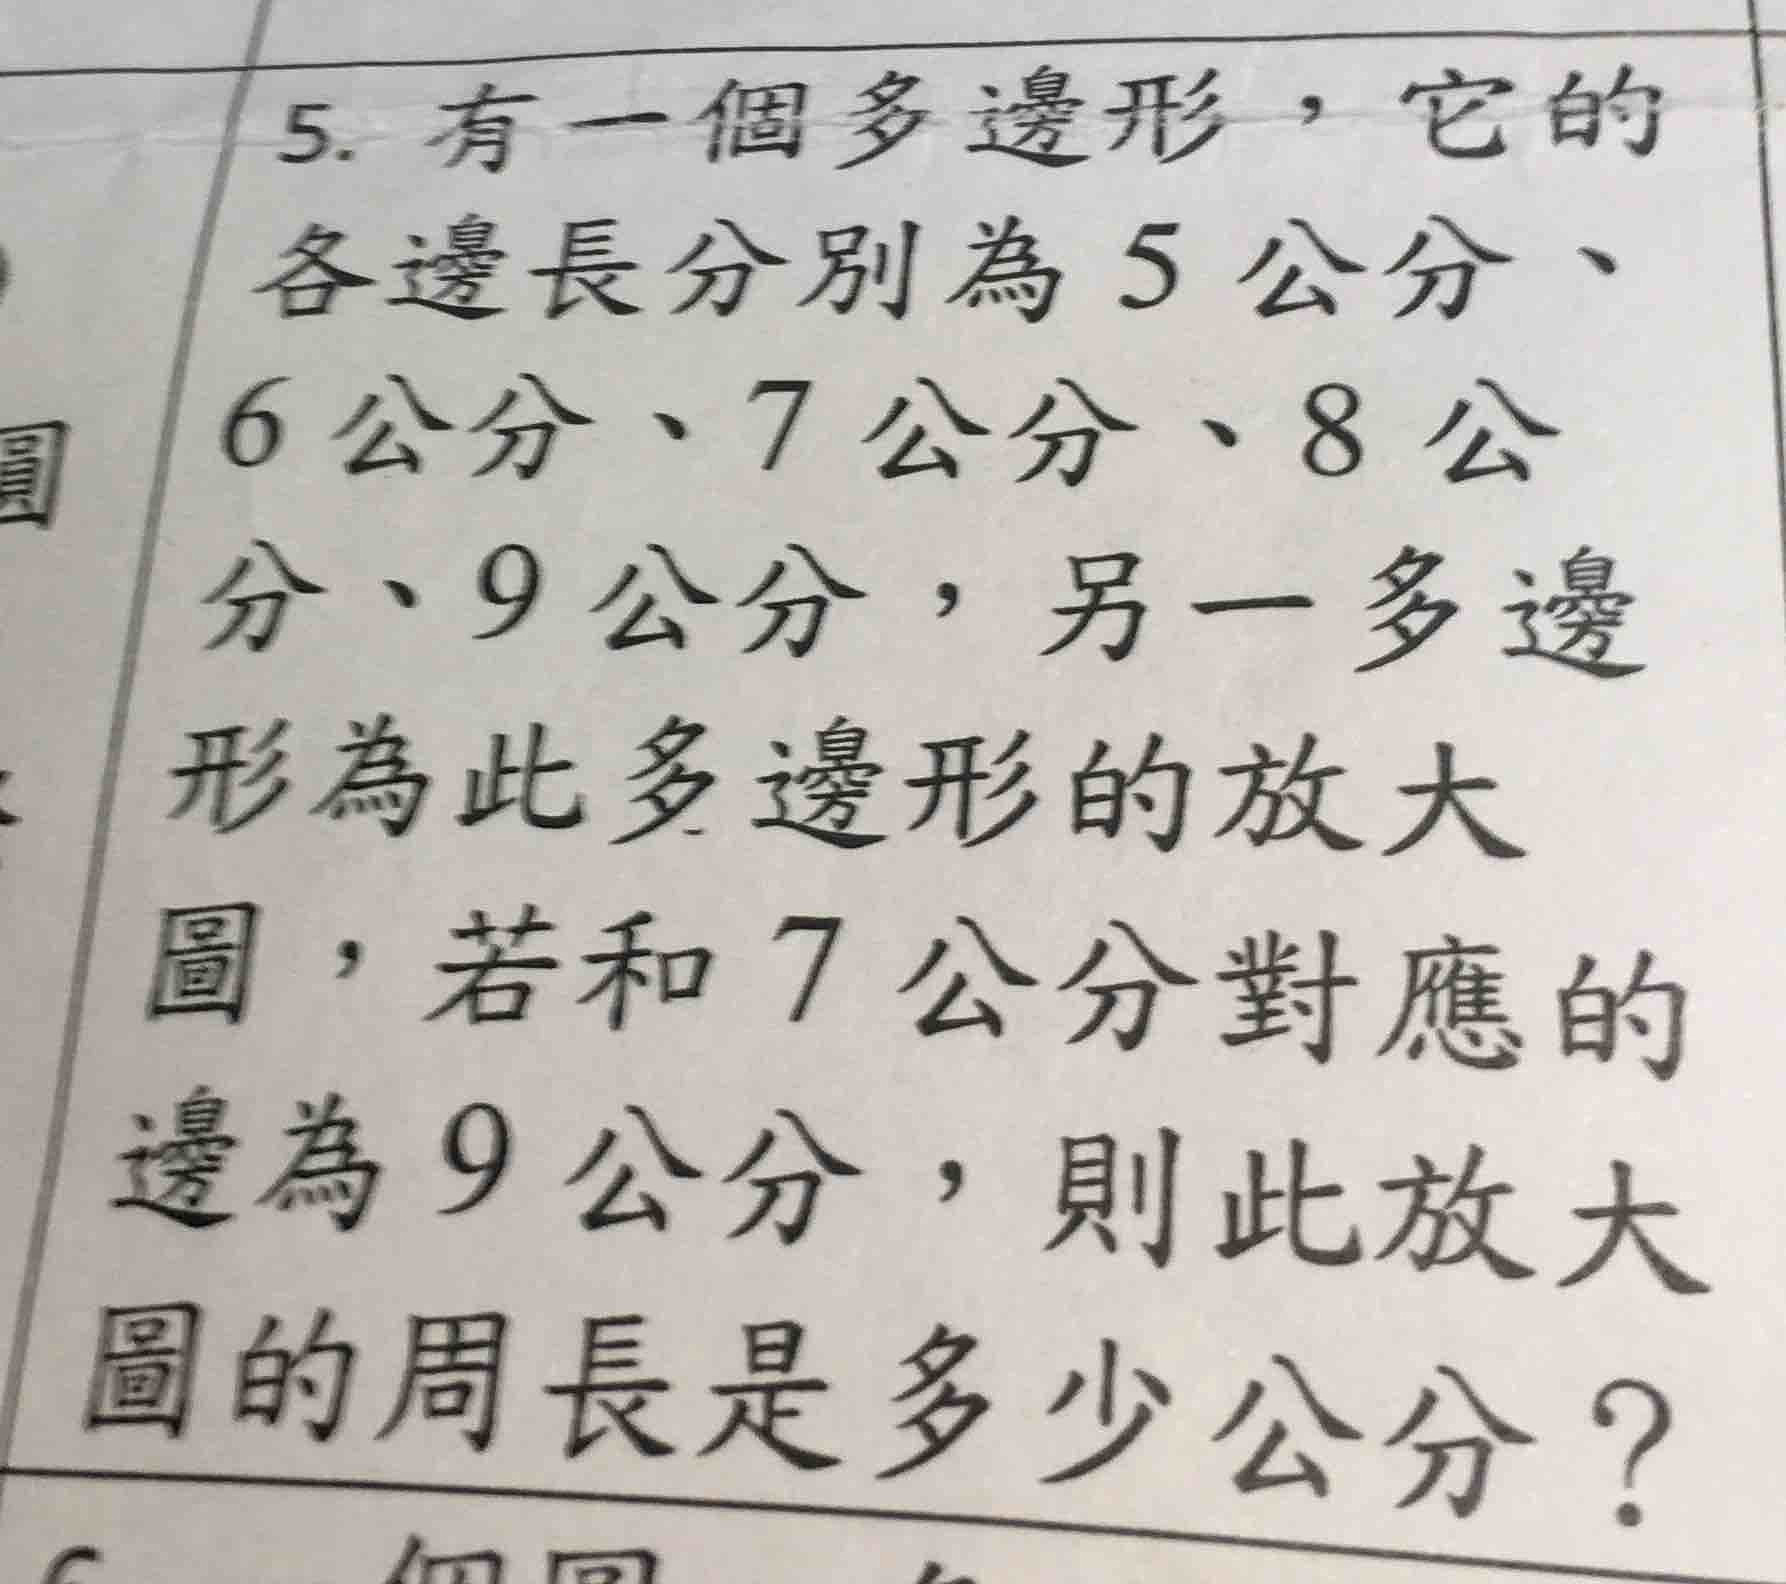 5. 有一個多邊形，它的
各邊長分別為 5 公分、
6 公分、7 公分、8 公
分、9 公分，另一多邊
形為此多邊形的放大
圖，若和 7 公分對應的
邊為 9 公分，則此放大
圖的周長是多少公分？
圓